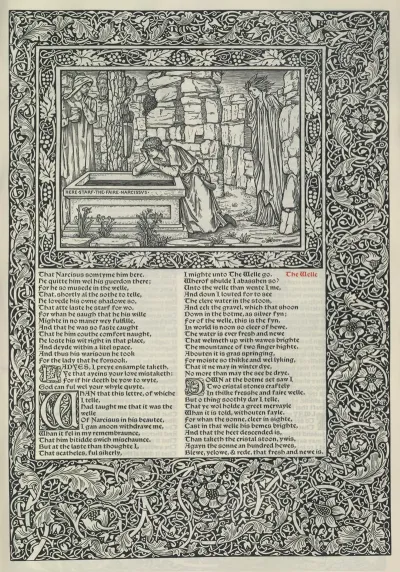 HERE·STARF·THE·FAIRE·NARCISSUS·
That Narcisus somtyme him bere.
He quitte him wel his guerdon there;
For he so musede in the welle,
That, shortly al the sothe to telle,
He lovede his owne shadowe so,
That atte laste he starf for wo.
For whan he saugh that he his wille
Mighte in no maner wey fulfille,
And that he was so faste caught
That he him couthe comfort naught,
He loste his wit right in that place,
And deyde within a litel space.
And thus his warisoun he took
For the lady that he forsook.
LADYES, I preye ensample taketh,
Ye that ayeins your love mistaketh:
For if hir deeth be yow to wyte,
God can ful wel your whyle quyte.
WHAN that this lettre, of whiche
I telle,
Had taught me that it was the
welle
Of Narcisus in his beautee,
I gan anoon withdrawe me,
Whan it fel in my remembraunce,
That him bitidde swich mischaunce.
But at the laste than thoughte I,
That scatheles, ful sikerly,
I mighte unto The Welle go.
The Welle
Wherof shulde I abaisshen so?
Unto the welle than wente I me,
And doun I louted for to see
The clere water in the stoon,
And eek the gravel, which that shoon
Down in the botme, as silver fyn;
For of the welle, this is the fyn,
In world is noon so cleer of hewe.
The water is ever fresh and newe
That welmeth up with wawes brighte
The mountance of two finger highte.
Abouten it is gras springing,
For moiste so thikke and wel lyking,
That it ne may in winter dye,
No more than may the see be drye.
DOWN at the botme set saw I
Two cristal stones craftely
In thilke fresshe and faire welle.
But o thing soothly dar I telle,
That ye wol holde a greet mervayle
Whan it is told, withouten fayle.
For whan the sonne, cleer in sighte,
Cast in that welle his bemes brighte,
And that the heet descended is,
Than taketh the cristal stoon, ywis,
Agayn the sonne an hundred hewes,
Blewe, yelowe, & rede, that fresh and newe is.